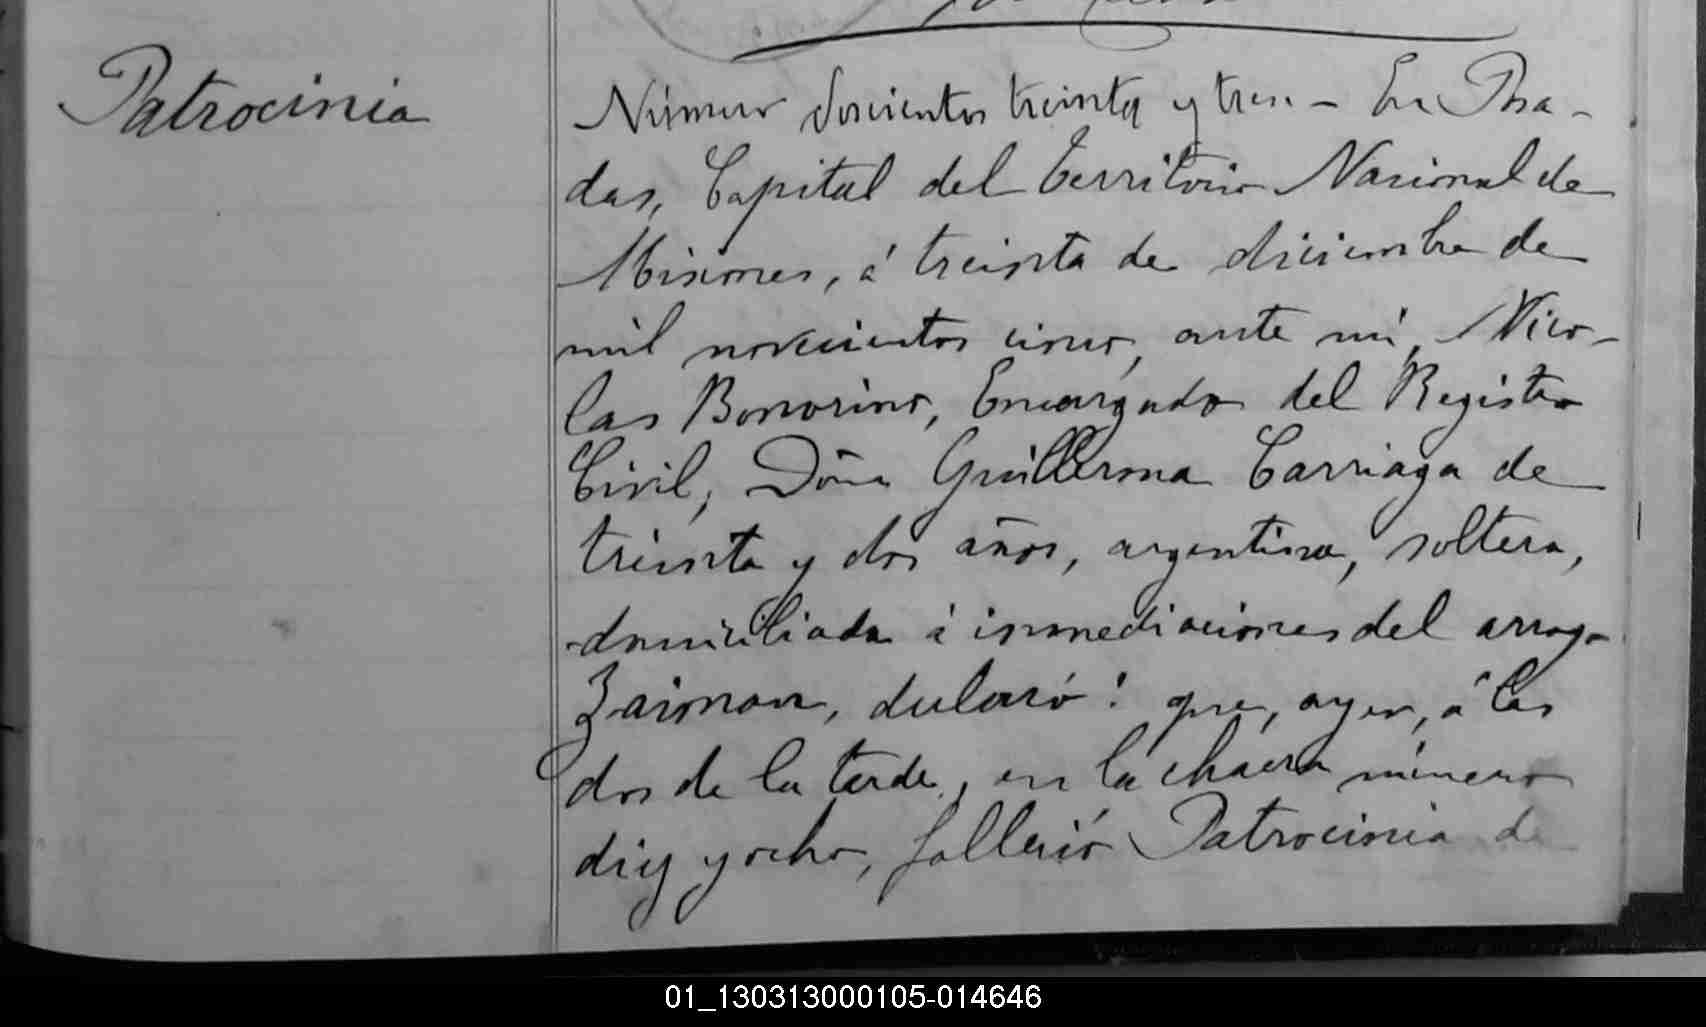 Patrocinia
Número doscientos treinta y tres. - En Posa-
das, Capital del Territorio Nacional de
Misiones, á treinta de diciembre de
mil novecientos cinco, ante mi, Nico-
las Bonorino, Encargado del Registro
Civil, Doña Guillerma Carriaga de
treinta y dos años, argentina, soltera,
domiciliada á inmediaciones del arroyo
Zaiman, declaró: que, ayer, á las
dos de la tarde, en la chacra número
diez y ocho, falleció Patrocinia de
01_130313000105-014646